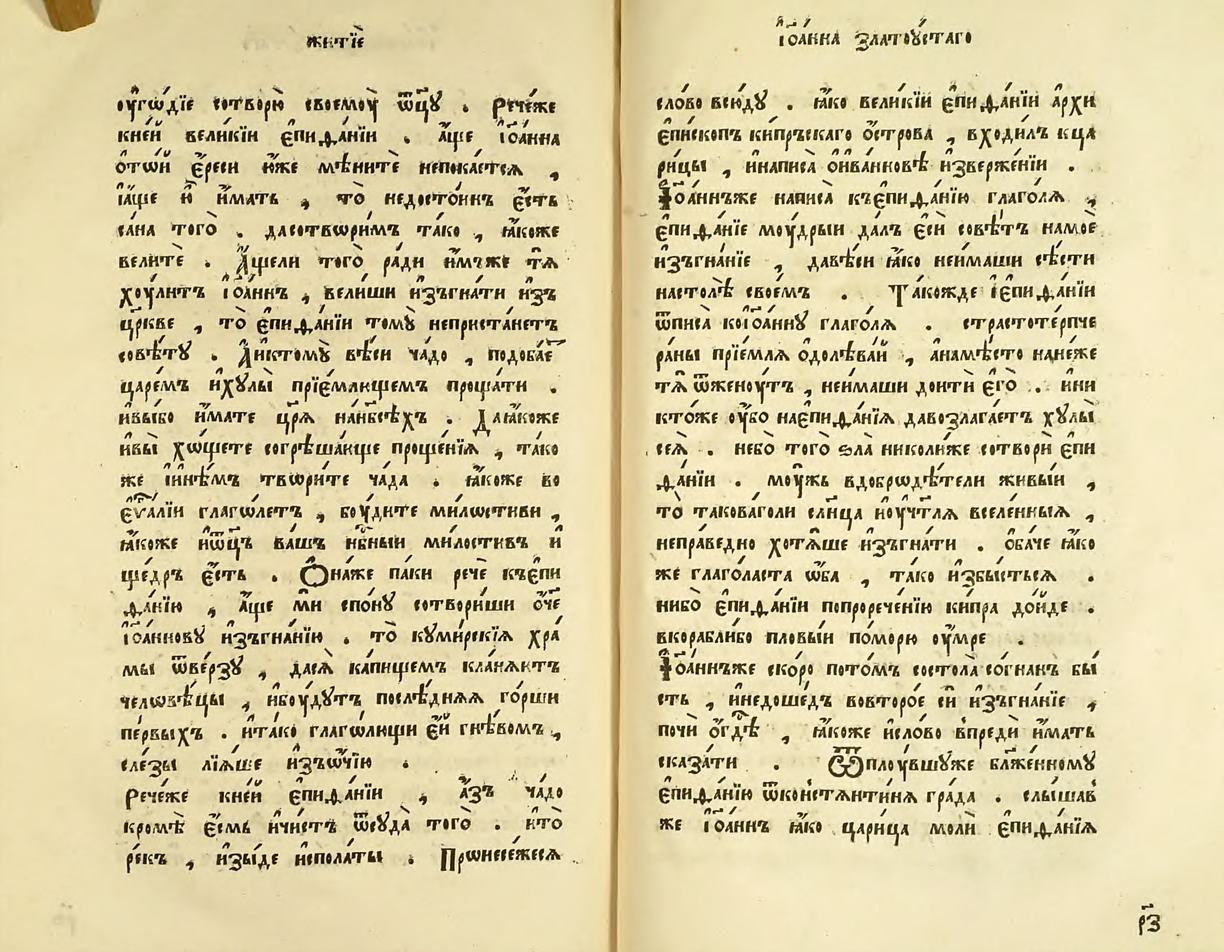 житїе
оу҆го́дїе сотворю̀ своемоу̀ ѿц҃у . Рече́же
кне́й вели́кїи є҆пифа́нїи . а҆́ще і҆ѡа́нна
ѿто́и є҆́реси ю҆́же мѣ́ните непока́етсѧ ,
і҆а҆́ще ю҆̀ и҆́мать , то̀ недосто́инъ є҆́сть
са́на того̀ . дасотвори́мъ та́ко , ꙗ҆́коже
вели́те . А҆́щели того̀ ра́ди и҆́мъже тѧ̀
хоу́литъ і҆ѡа́ннъ , вели́ши и҆зъгна́ти и҆зъ
цр҃кве , то̀ є҆пифа́нїи томꙋ̀ непристане́тъ
совѣ́тꙋ . Ди́ктомꙋ вѣ́си ча́до , подоба́е
царе́мъ и҆хꙋлы̀ прїе́млющемъ проща́ти .
и҆вы́бо и҆́мате цр҃ѧ̀ наⷣвсѣ́хъ . Даꙗ҆́коже
и҆вы̀ хо́щете согрѣша́юще проще́нїѧ , та́ко
же и҆и҆нѣ́мъ твори́те ча́да . ꙗ҆́коже во
є҆ѵⷢ҇а́лїи глаго́летъ , боу́дите ми́лостиви ,
ꙗ҆́коже и҆ѿц҃ъ ва́шъ нб҃ный ми́лостивъ и҆
ще́дръ є҆́сть . Ѻ҆на́же па́ки речѐ къє҆пи
фа́нїю , а҆́ще мѝ спо́нꙋ сотвори́ши о҆́ч҃е
і҆ѡа́нновꙋ и҆зъгна́нїю . то̀ куми́рскїѧ хра́
мы ѿве́рзꙋ , дасѧ̀ ка́пищемъ кла́нѧютъ
человѣ́цы , и҆боу́дꙋтъ послѣ́днѧѧ го́рши
пе́рвыхъ . и҆та́ко глаго́лющи є҆́й гнѣ́вомъ ,
сле́зы лїѧ́ше и҆зъѻ҆́чїю .
Рече́же кне́й є҆пифа́нїи , а҆́зъ ча́до
кромѣ̀ є҆́смь и҆чи́стъ ѿсꙋда̀ того̀ . и҆то
ре́къ , и҆зы́де и҆спола́ты . Пронесе́жесѧ
і҆ѡа́нна златоу́стаго
сло́во всю́дꙋ . ꙗ҆́ко вели́кїи є҆пифа́нїи а҆рхи
є҆пи́скопъ ки́прьскаго о҆́строва , входи́лъ кца
ри́цы , и҆написа̀ о҆и҆ва́нновѣ и҆зверже́нїи .
І҆ѡа́ннъже написа̀ къє҆пифа́нїю глаго́лѧ ,
є҆пифа́нїе моу́дрыи да́лъ є҆сѝ совѣ́тъ намоѐ
и҆зъгна́нїе , давѣ́си ꙗ҆́ко неи́маши сѣ́сти
насто́лѣ свое́мъ . Та́кожде і҆є҆пифа́нїи
ѿписа̀ коі҆ѡа́ннꙋ глаго́лѧ . страстоте́рпче
ра́ны прїе́млѧ ѻ҆долѣва́й , а҆намѣ́сто нане́же
тѧ̀ ѿженоу́тъ , неи́маши доитѝ є҆гѡ̀ . и҆ни
кто́же оу҆́бо нає҆пифа́нїѧ давозлага́етъ хꙋлы̀
сеѧ̀ . небо̀ того̀ ѕла̀ николи́же сотворѝ є҆пи
фа́нїи . моу́жь вдобродѣ́тели живы́и ,
то̀ такова́голи сл҃нца и҆оу҆чт҃лѧ вселе́нныѧ ,
непра́ведно хотѧ́ше и҆зъгна́ти . ѻ҆ба́че ꙗ҆́ко
же глаго́ласта ѻ҆́ба , та́ко и҆збы́стьсѧ .
нибо̀ є҆пифа́нїи попрорече́нїю ки́пра до́йде .
вкорабли́бо пловы́и помо́рю оу҆́мре .
І҆ѡа́ннъже ско́ро пото́мъ состола̀ со́гнанъ бы́
сть , и҆недоше́дъ вовторо́е сѝ и҆зъгна́нїе ,
почѝ о҆гдѣ̀ , ꙗ҆́коже и҆сло́во впредѝ и҆́мать
сказа́ти . Ѿплоу́вшꙋже бл҃же́нномꙋ
є҆пифа́нїю ѿконстѧнти́на гра́да . слы́шав
же І҆ѡа́ннъ ꙗ҆́ко цари́ца молѝ є҆пифа́нїѧ
р҃з